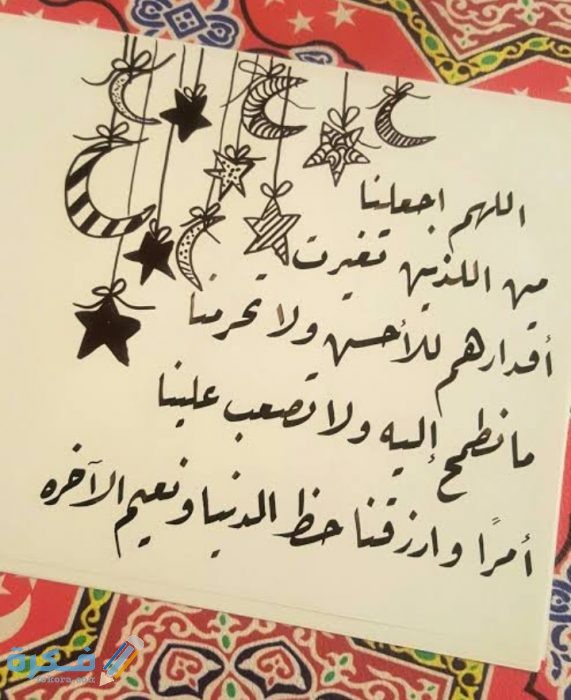 اللهم اجعلنا
من اللذين تغيرت
أقدارهم للأحسن ولا تحرمنا
ما نطمح إليه ولا تصعب علينا
أمرًا وارزقنا حظ الدنيا ونعيم الآخره
فكرة